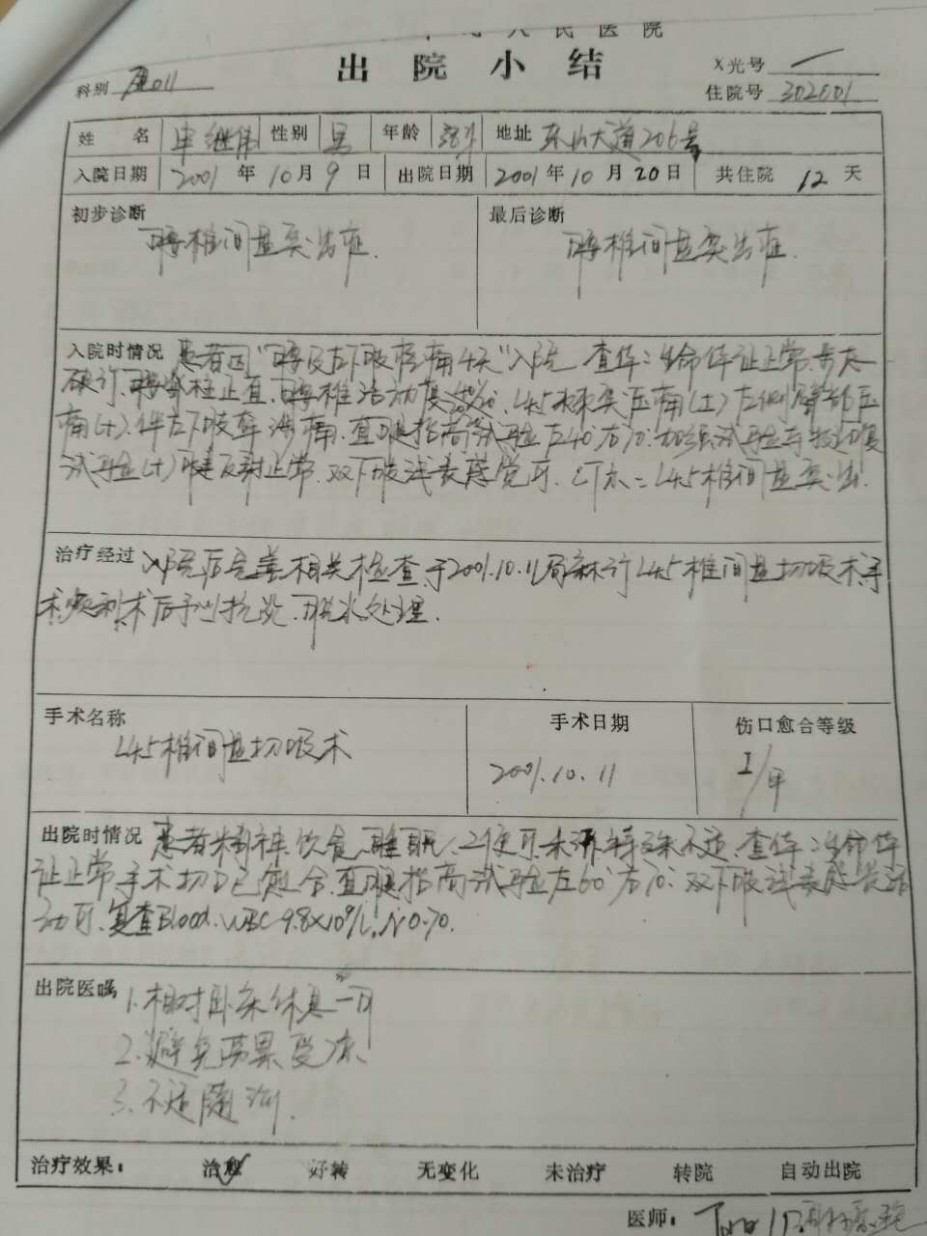 人民医院
出院小结
X光号 —
科别
住院号 302001
姓名 继伟 性别 男 年龄 38岁 地址 东山大道206号
入院日期 2001年10月9日 出院日期 2001年10月20日 共住院 12天
初步诊断 最后诊断
腰椎间盘突出症. 腰椎间盘突出症.
入院时情况 患者因"腰及左下肢疼痛4天"入院 查体:生命体证正常.
腰脊柱正直.腰椎活动 L45棘突压痛(±)左侧臀部压
痛(+).伴左下肢牵涉痛.直腿抬高试验左40°右70°加强试验
试验(+)腱反射正常.双下肢浅表感觉可.CT示:L45椎间盘突出.
治疗经过 入院后完善相关检查,于2001.10.11局麻行L45椎间盘切吸术,手
术顺利,术后予以抗炎.脱水处理.
手术名称 手术日期 伤口愈合等级
L45椎间盘切吸术 2001.10.11 I/甲
出院时情况 患者精神.饮食.睡眠.二便可.未诉特殊不适.查体:生命体
证正常.手术切口已愈合.直腿抬高试验左60°右70°.双下肢浅表感觉活
动可.复查Blood.WBC 9.8×10⁹/L,N0.70.
出院医嘱 1.相对卧床休息一月
2.避免劳累受凉
3.不适随诊.
治疗效果: 治愈✓ 好转 无变化 未治疗 转院 自动出院
医师: